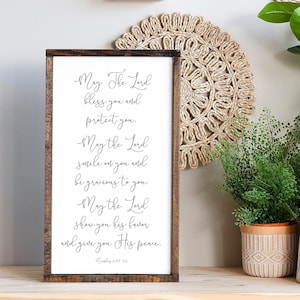 May The Lord
bless you and
protect you.
May the Lord
smile on you and
be gracious to you.
May the Lord
show you his favor
and give you His peace.
Numbers 6:24-26